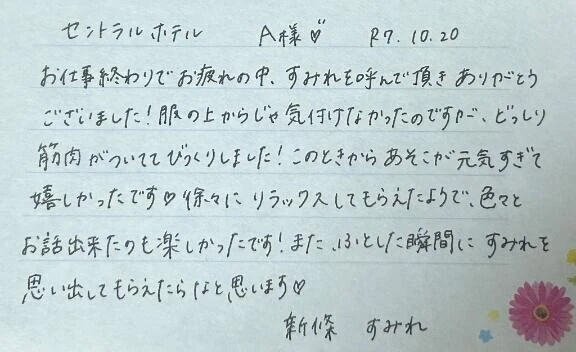 セントラルホテル A様♡ R7.10.20
お仕事終わりでお疲れの中、すみれを呼んで頂きありがとう
ございました!服の上からじゃ気付けなかったのですが、どっしり
筋肉がついててびっくりしました!このときからあそこが元気すぎて
嬉しかったです♡徐々にリラックスしてもらえたようで、色々と
お話出来たのも楽しかったです!また、ふとした瞬間にすみれを
思い出してもらえたらなと思います♡
新條 すみれ